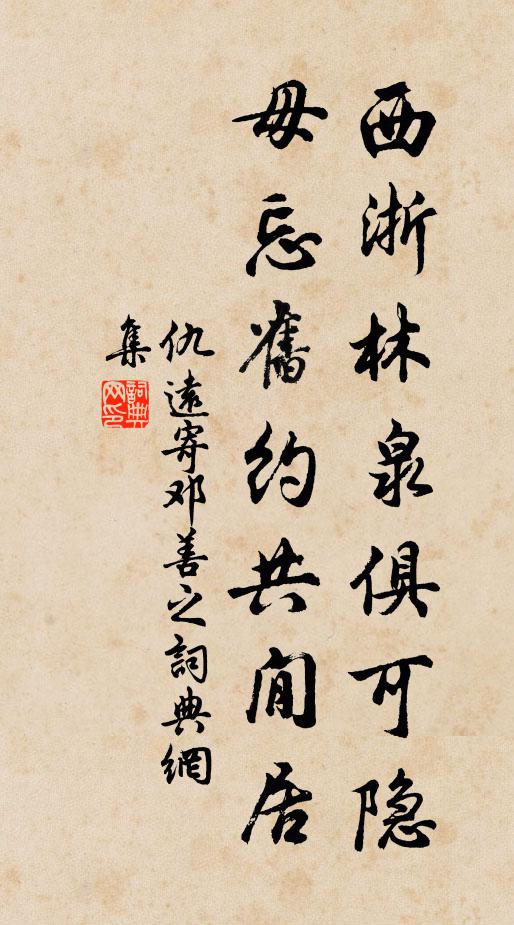 西浙林泉俱可隐
毋忘舊约共閒居
仇遠寄邓善之詞典網
集
詞典網印